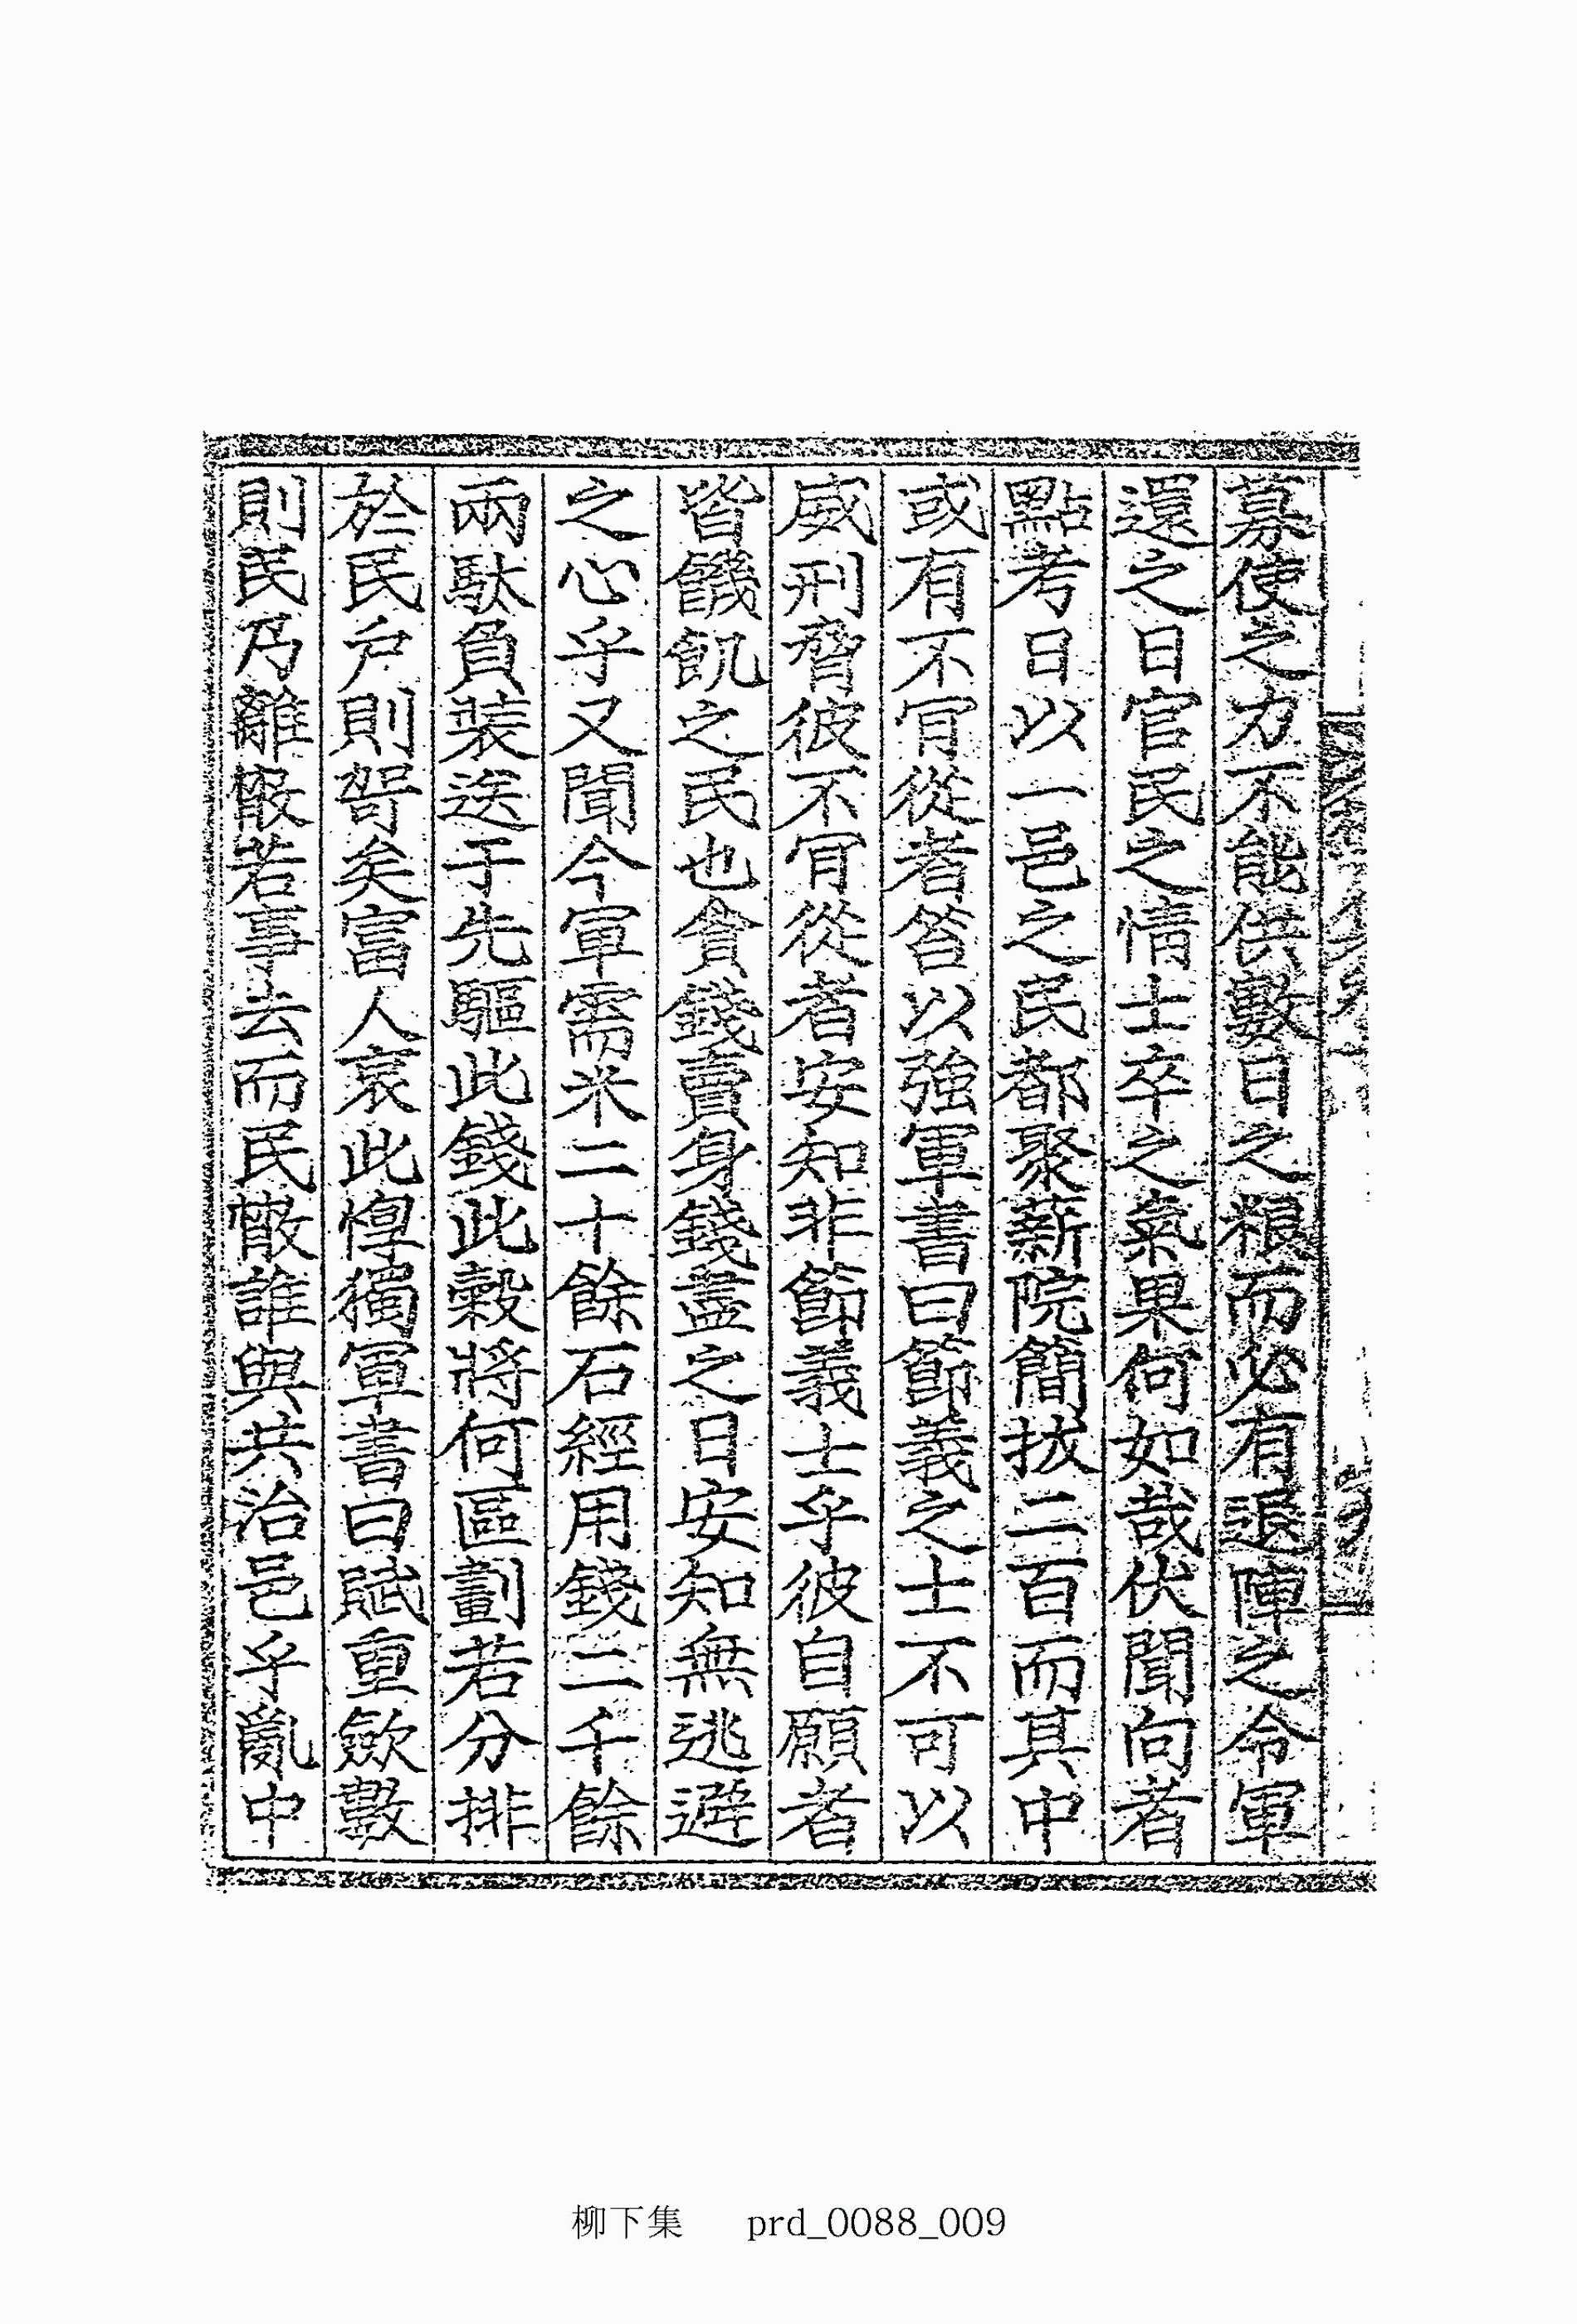 募使之力不能供數日之粮而必有退陣之令軍
還之日官民之情士卒之氣果何如哉伏聞向者
點考日以一邑之民都聚薪院簡拔二百而其中
或有不肎從者答以強軍書曰節義之士不可以
威刑脅彼不肎從者安知非節義士乎彼自願者
皆饑飢之民也貪錢賣身錢盡之日安知無逃避
之心乎又聞今軍需米二十餘石經用錢二千餘
兩駄負裝送于先驅此錢此穀將何區劃若分排
於民戶則哿矣富人哀此惸獨軍書曰賦重歛數
則民乃離散若事去而民散誰與共治邑乎亂中
柳下集 prd_0088_009